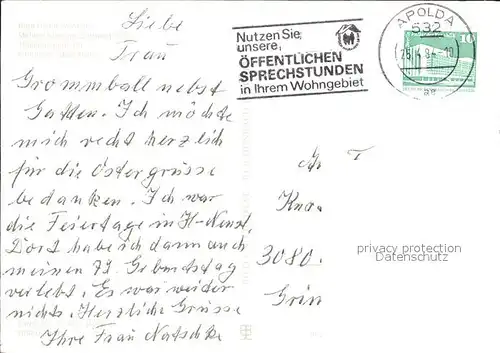 Liebe
Frau
Grommball nebst
Gatten. Ich möchte
mich recht herzlich
für die Ostergrüsse
bedanken. Ich war
die Feiertage in
Dort habe ich dann auch
meinen 79. Geburtstag
verlebt. Es war weiter
nichts. Herzliche Grüsse
Ihre Frau Natschke
Nutzen Sie
unsere
ÖFFENTLICHEN
SPRECHSTUNDEN
in Ihrem Wohngebiet
APOLDA
532
25.4.84-10
ae
10
3080
privacy protection
Datenschutz